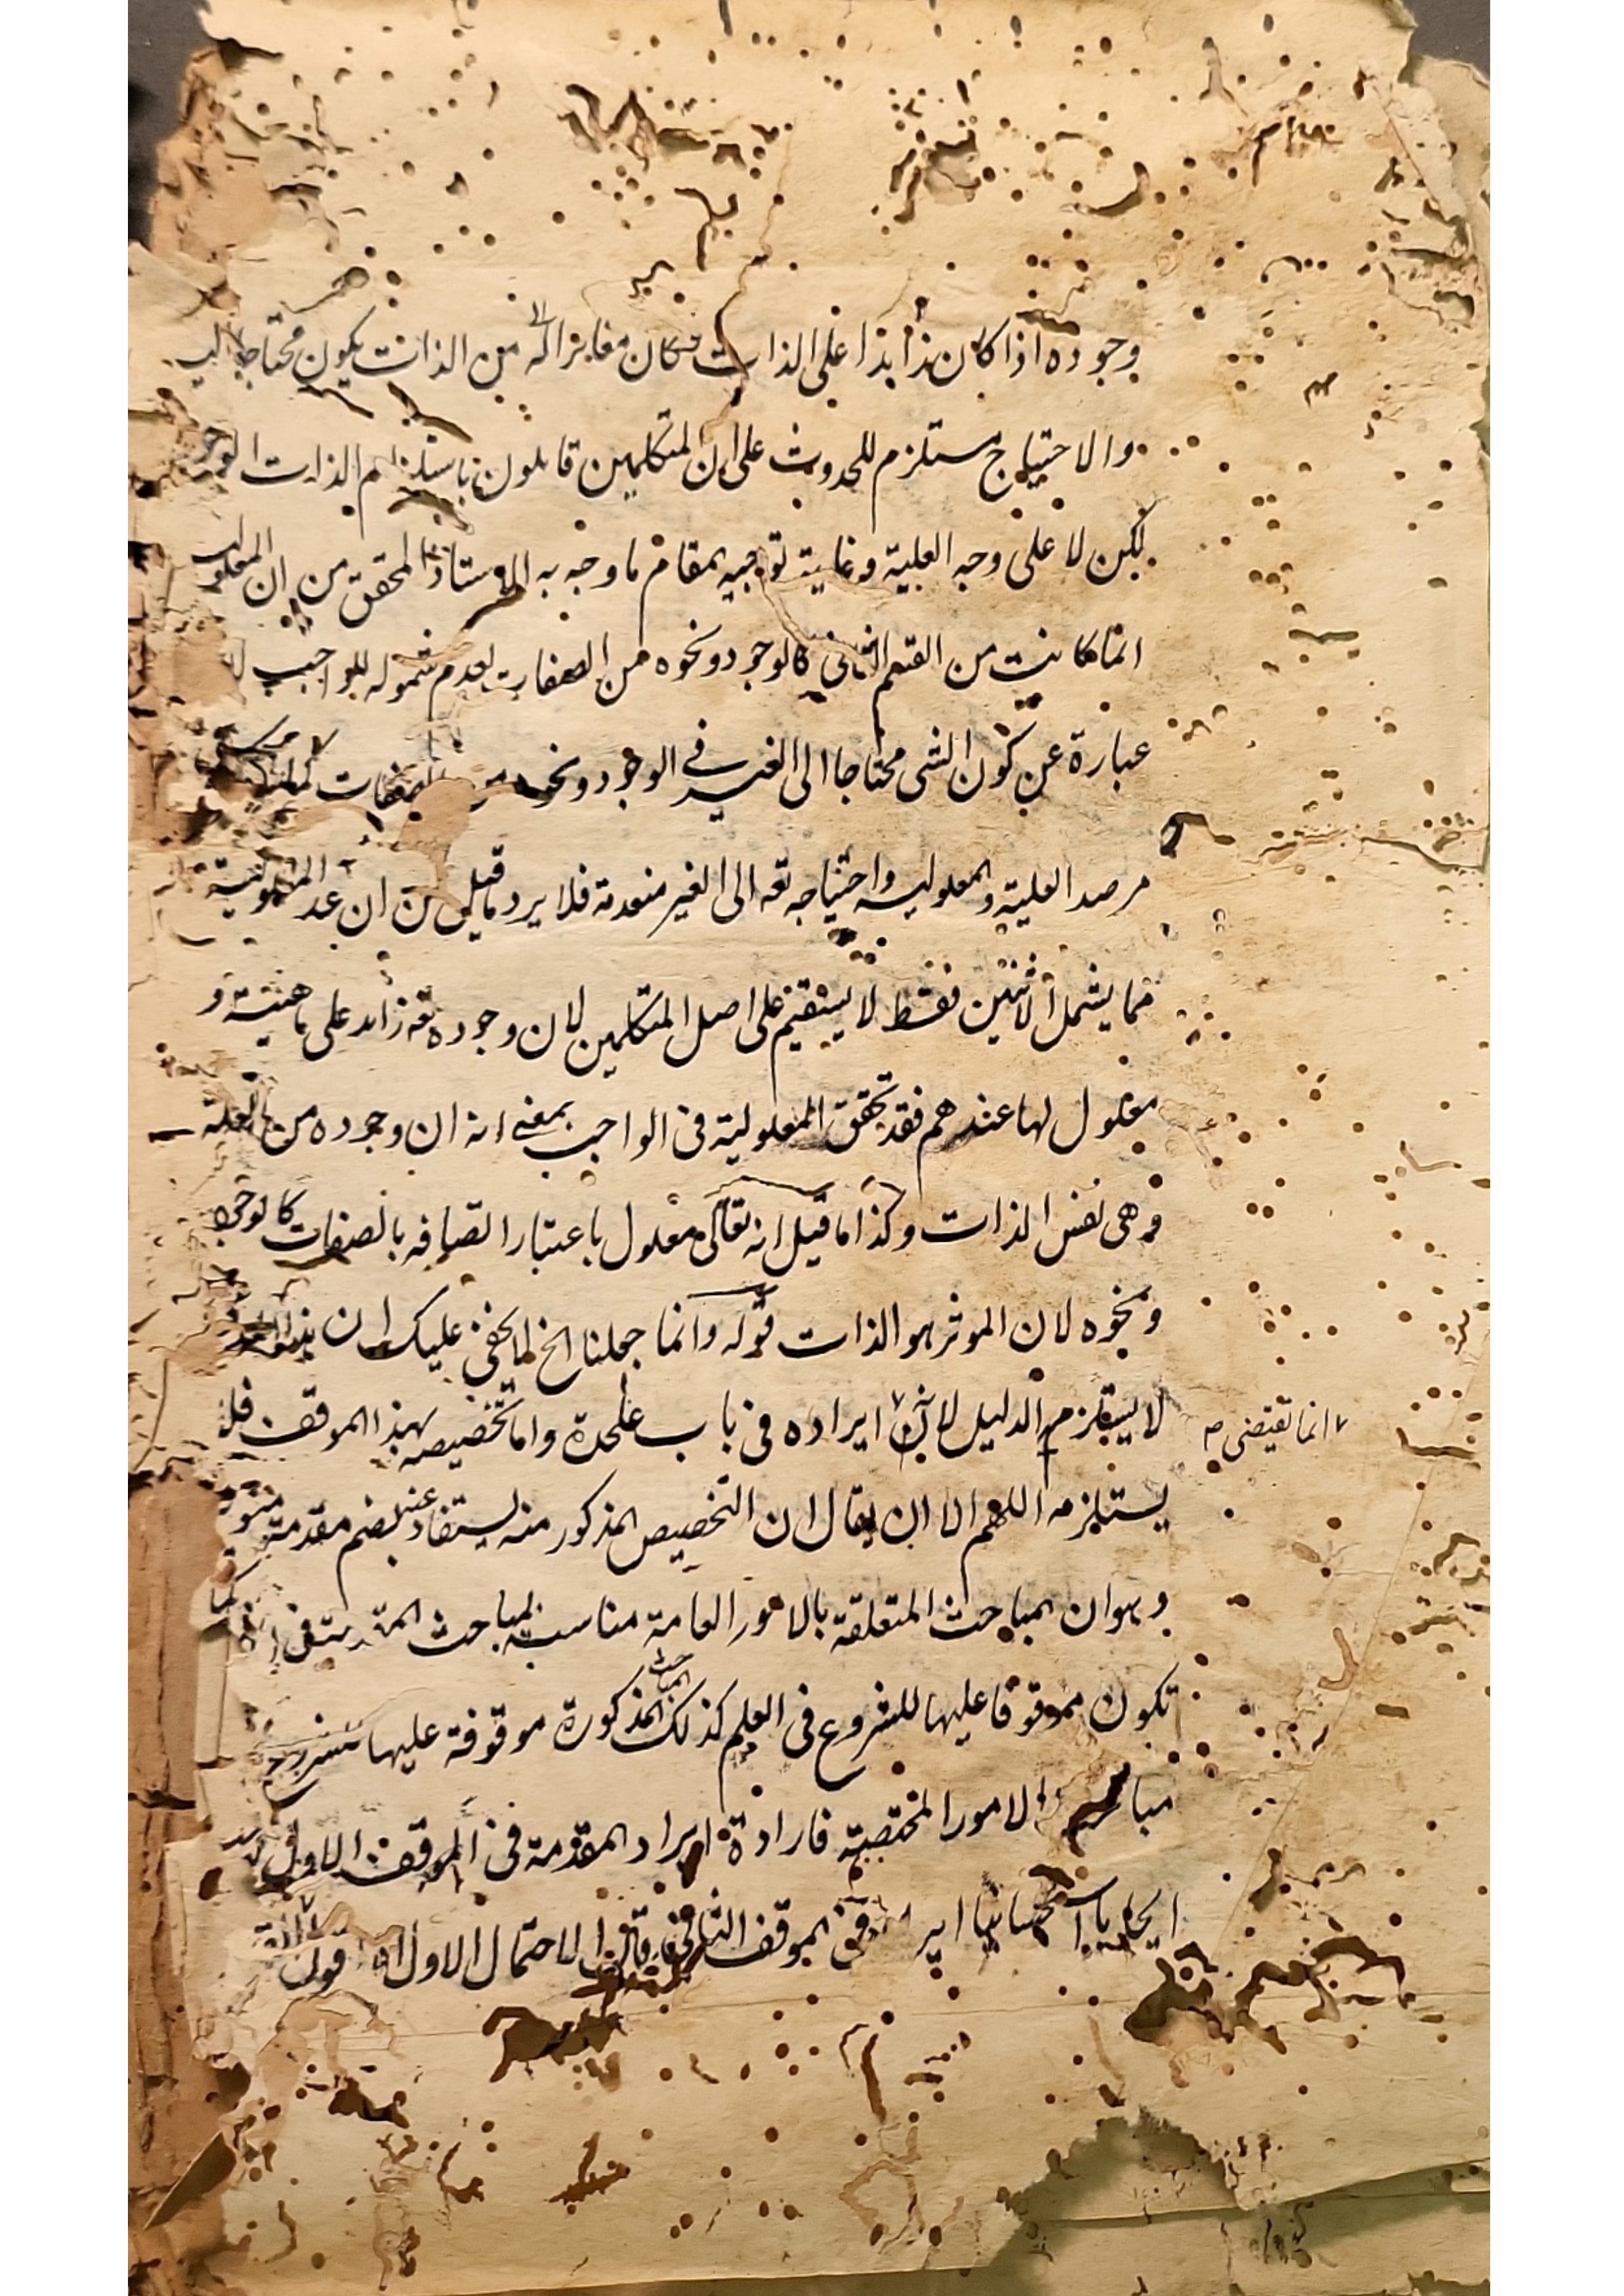 وجوده اذا كان زائدا على الذات فكان مغايرا له من الذات يكون محتاجا اليه
والاحتياج مستلزم للحدوث على ان المتكلمين قايلون باستلزام الذات الوجود
لكن لا على وجه العلية وغاية توجيه المقام ما وجه به الاستاذ المحقق من ان المعلولية
انما كانت من القسم الثاني كالوجود ونحوه من الصفات لعدم شموله للواجب
عبارة عن كون الشى محتاجا الى الغير فى الوجود ونحوه من الصفات
مرصد العلية والمعلولية واحتياجه تعه الى الغير منعدمة فلا يرد ما قيل من ان عد المعلولية
مما يشمل الاثنين فقط لا يستقيم على اصل المتكلمين لان وجوده تعه زائد على ماهيته و
معلول لها عندهم فقد تحقق المعلولية فى الواجب بمعنى انه ان وجوده من العلة
وهى نفس الذات وكذا ما قيل انه تعالى معلول باعتبار اتصافه بالصفات كالوجود
ونحوه لان الموثر هو الذات قوله وانما جعلنا الخ لا يخفى عليك ان
لا يستلزم الدليل لان ايراده فى باب علحدة واما تخصيصه بهذا الموقف فلا
انما تقتضى
يستلزمه اللهم الا ان يقال ان التخصيص المذكور منه يستفاد عنه بضم مقدمة
وهو ان المباحث المتعلقة بالامور العامة مناسبة لمباحث
تكون موقوفا عليها للشروع فى العلم كذلك المباحث المذكورة موقوفة عليها
الامور المختصة فارادة ايراد المقدمة فى الموقف الاول
فى الموقف الثانى الاحتمال الاول قوله